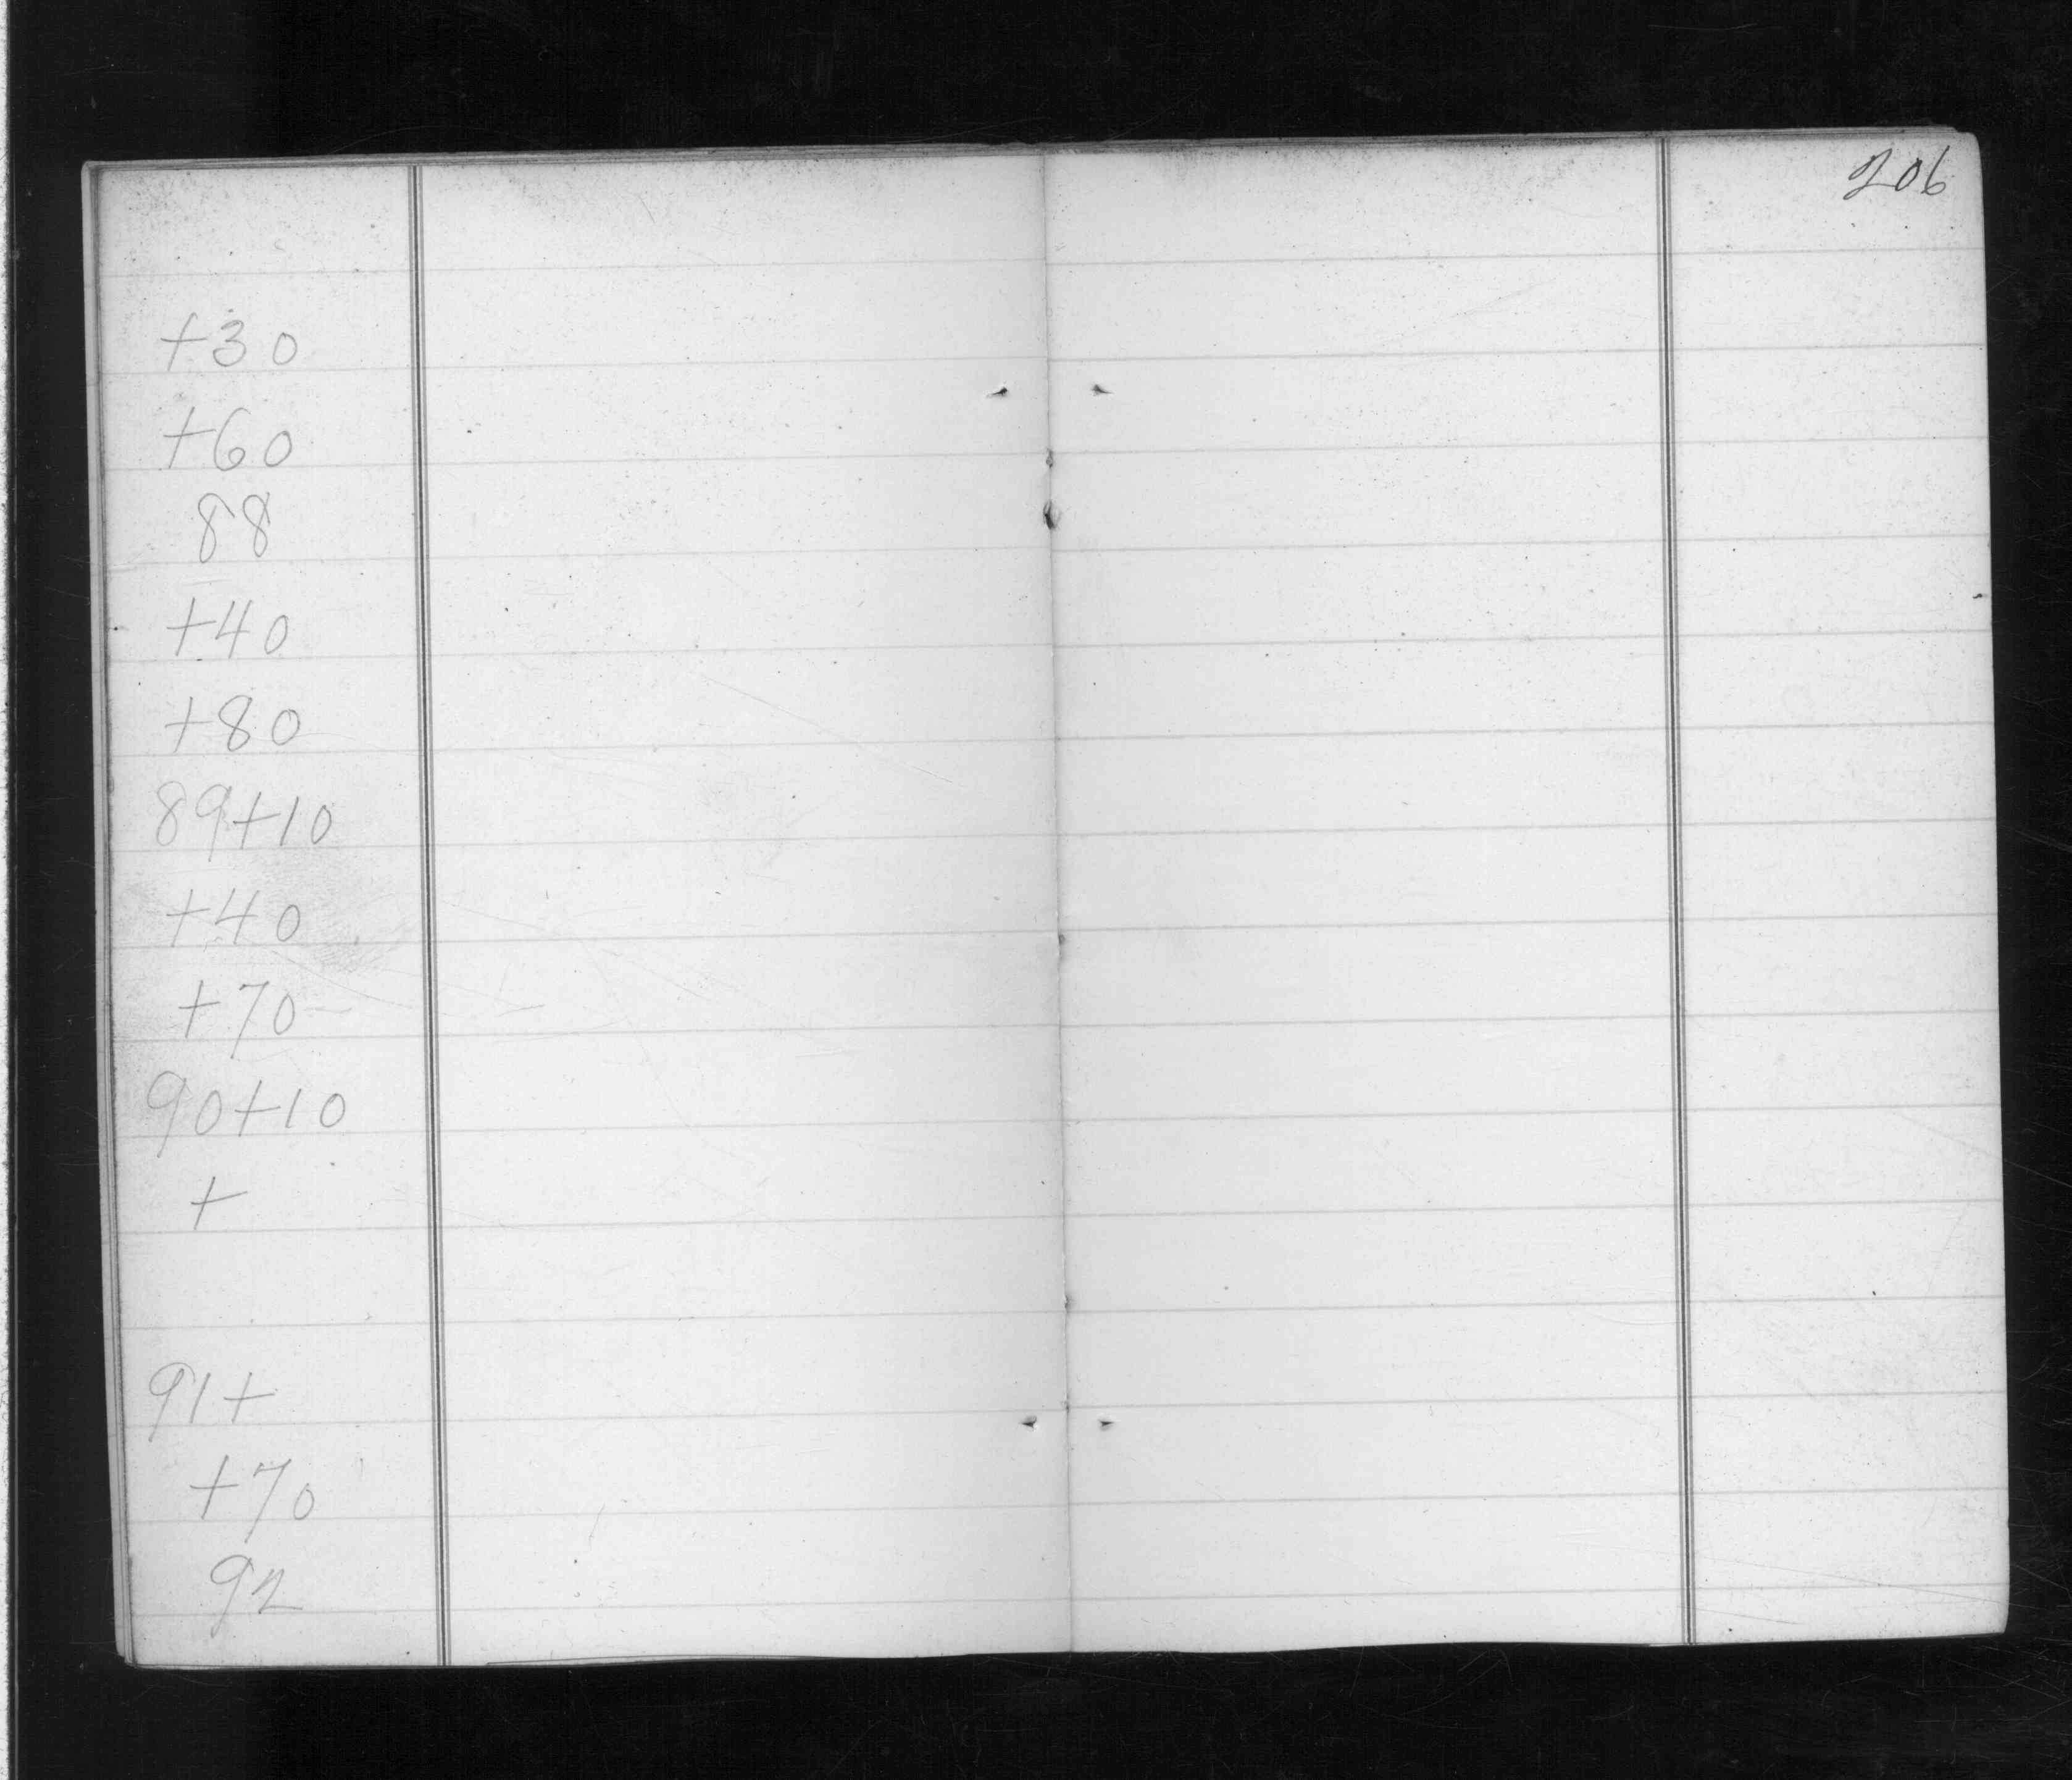 206
+30
+60
88
+40
+80
89+10
+40
+70
90+10
+
91+
+70
92